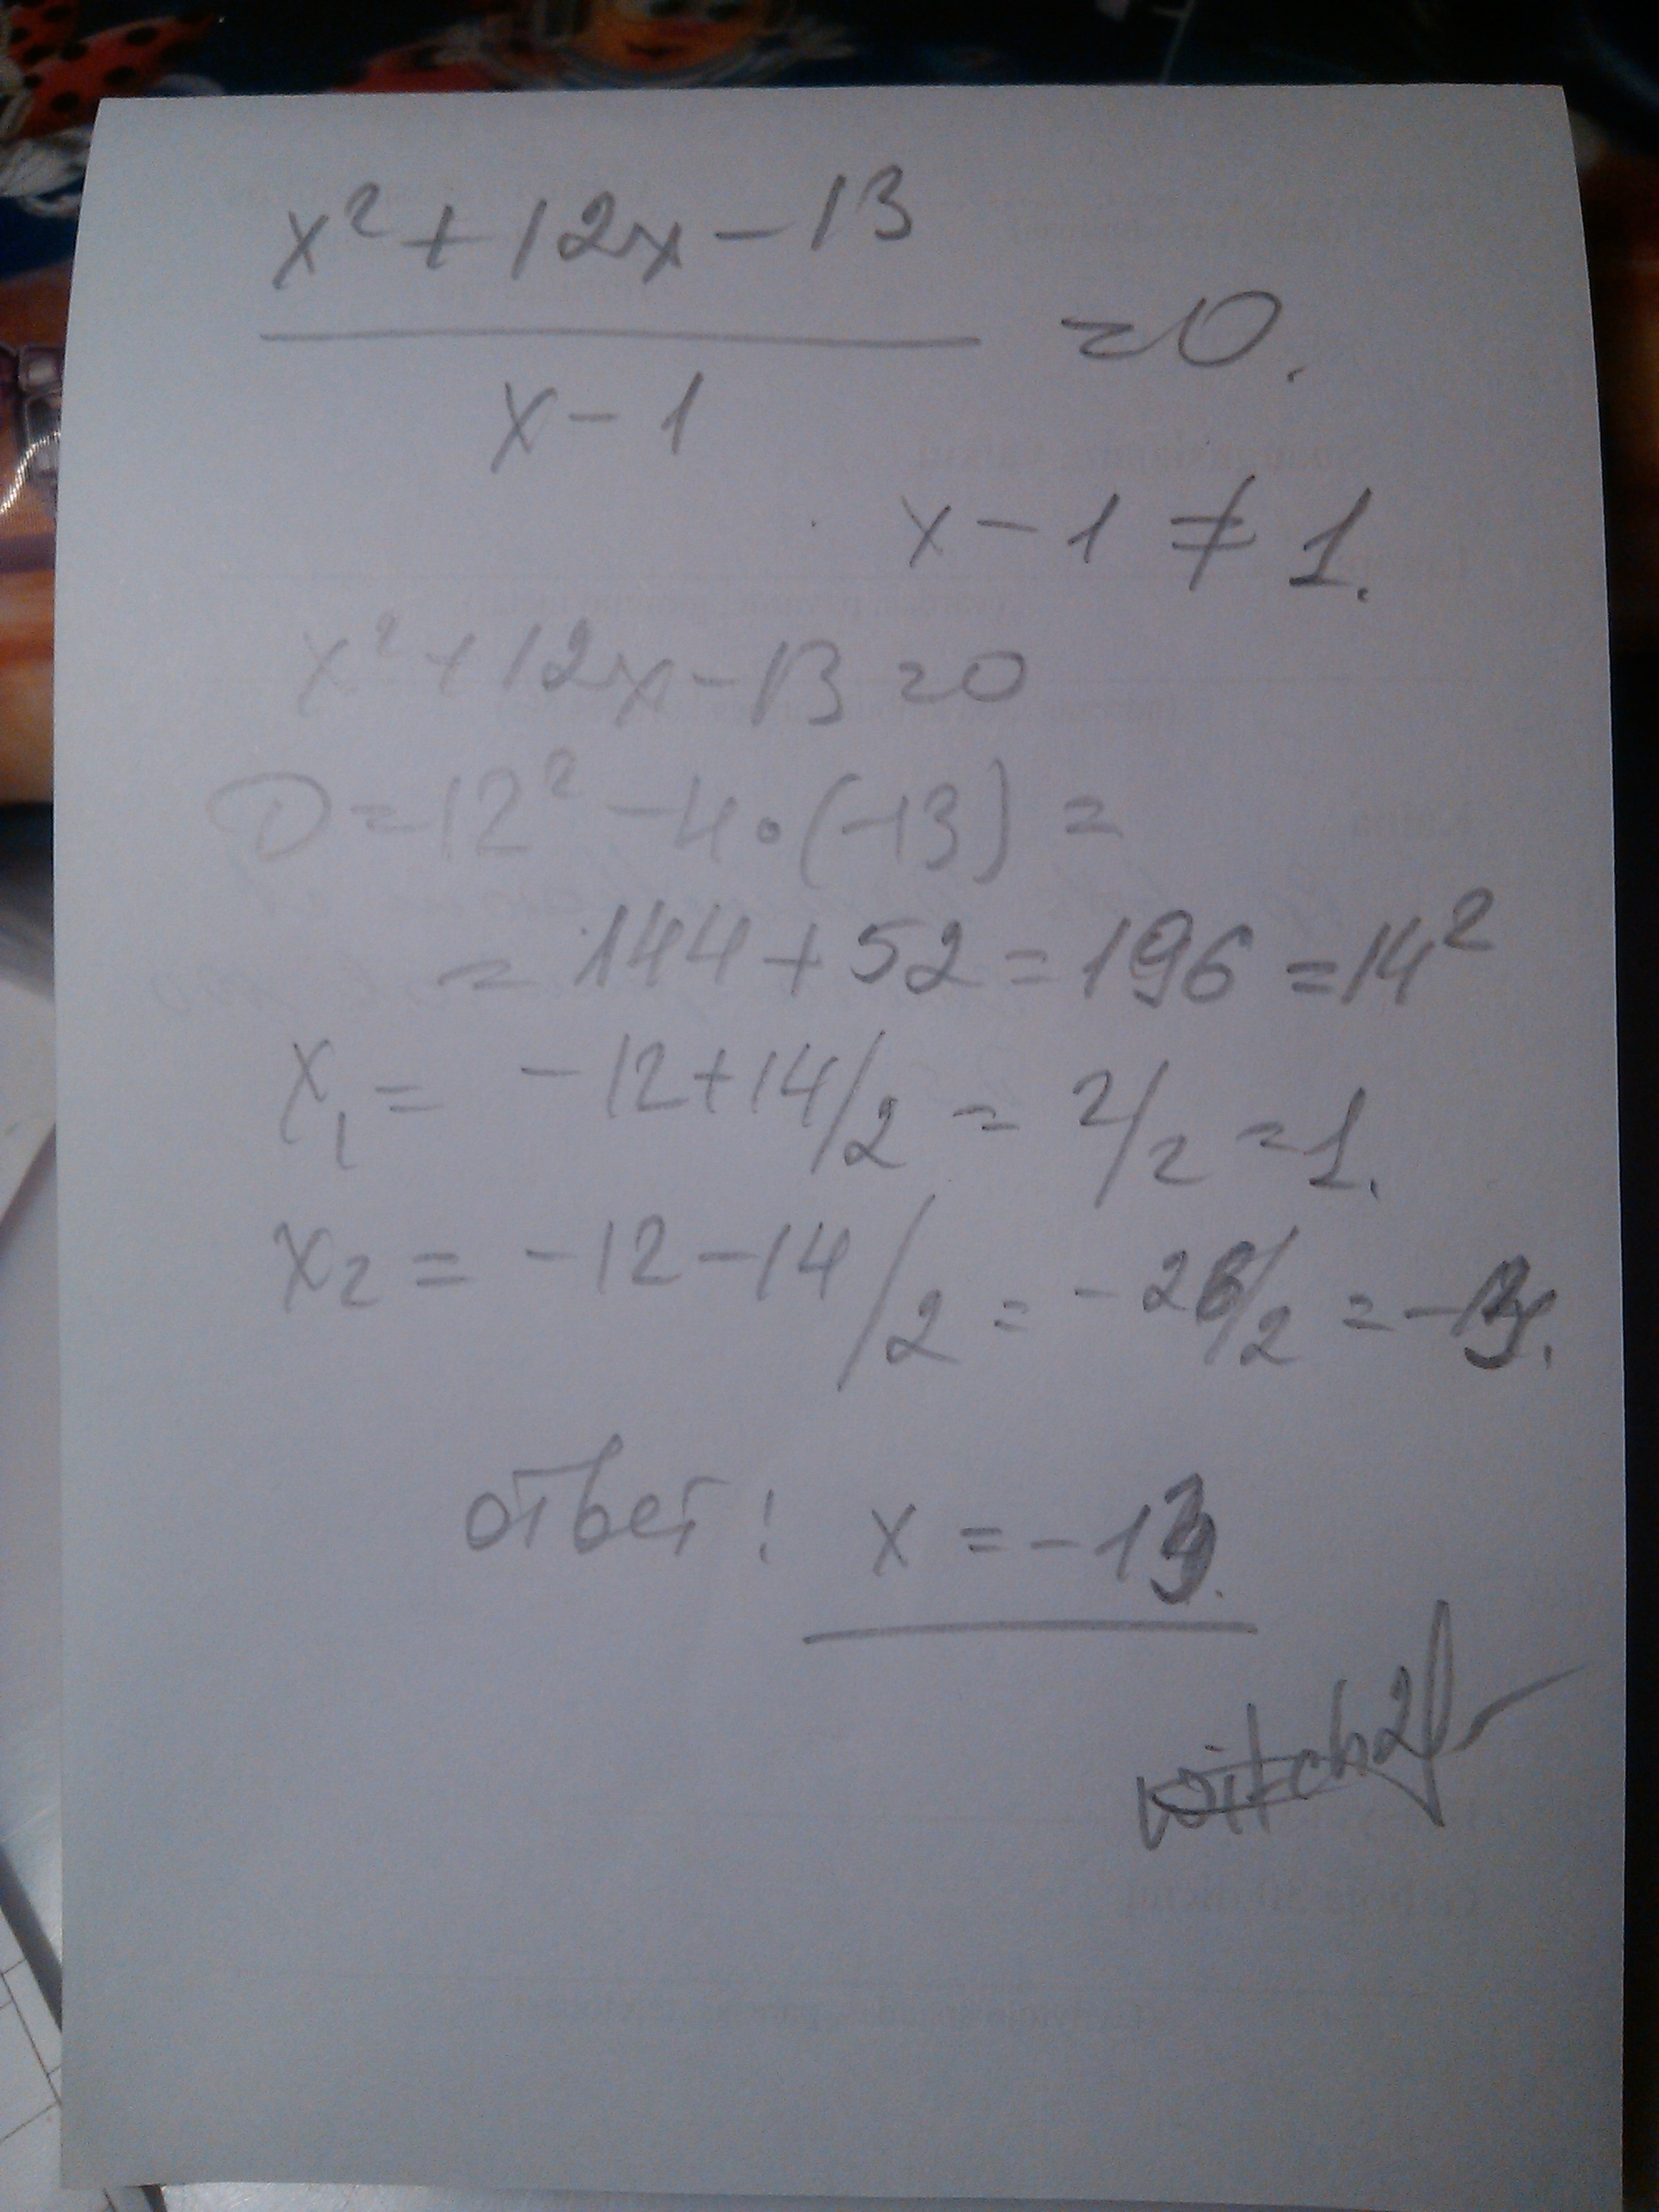 x² + 12x - 13
x - 1
= 0.
x - 1 ≠ 1.
x² + 12x - 13 = 0
D = 12² - 4 · (-13) =
= 144 + 52 = 196 = 14²
x₁ = -12+14/2 = 2/2 = 1.
x₂ = -12-14/2 = -26/2 = -13.
ответ: x = -13.